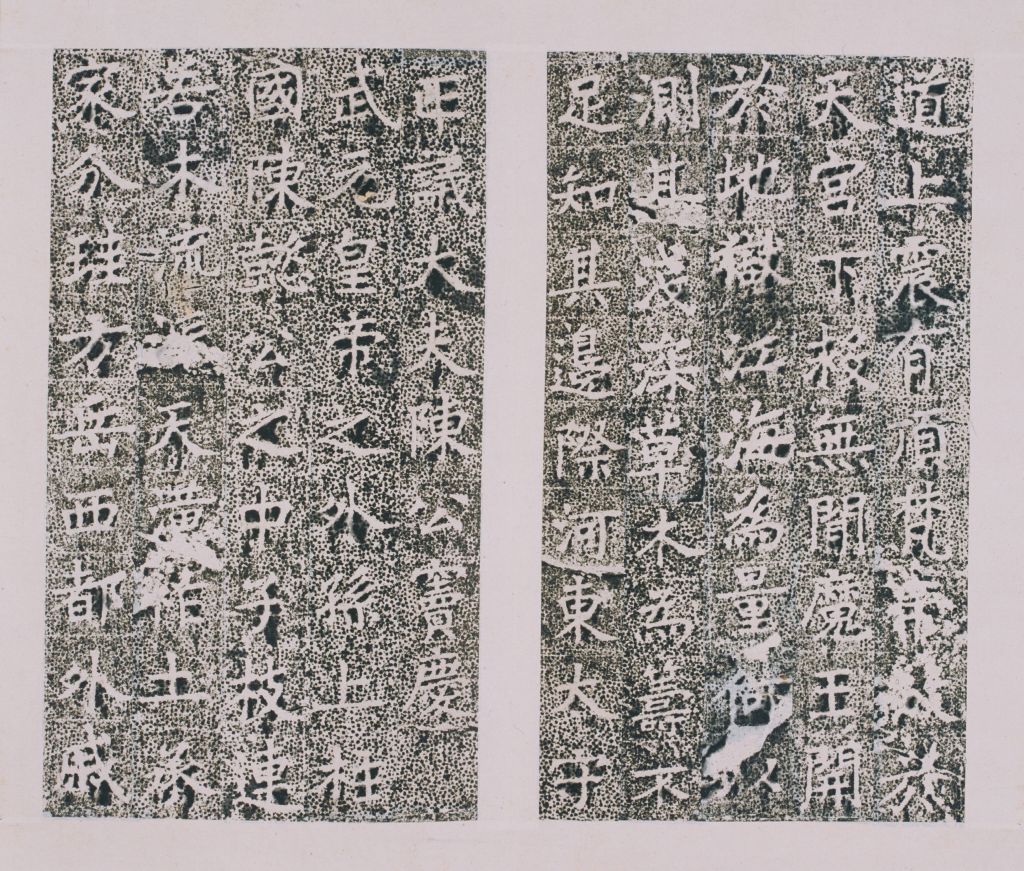 道上震有頂梵帝於
天宮下極無間魔王開
於地獄江海為量尚以
測其淺深草木為籌不
足知其邊際河東太守
正議大夫陳公竇慶
武元皇帝之外孫上柱
國陳懿公之中子枝連
若木流派天潢作土
家分珪方岳西都外戚